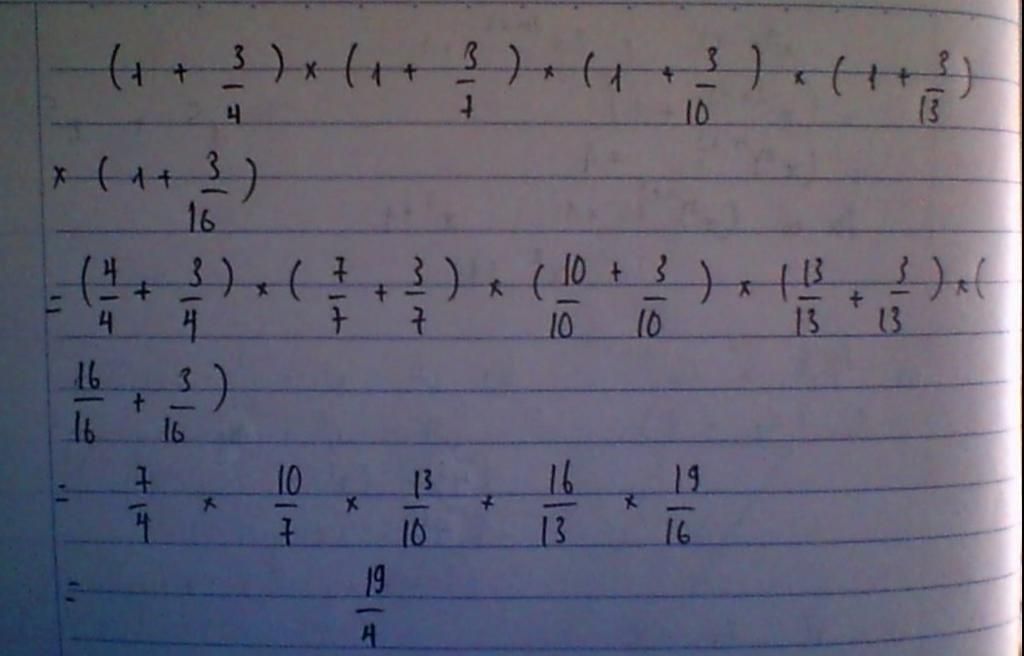 (1 + 3/4) × (1 + 3/7) × (1 + 3/10) × (1 + 3/13)
× (1 + 3/16)
= (4/4 + 3/4) × (7/7 + 3/7) × (10/10 + 3/10) × (13/13 + 3/13) × (
16/16 + 3/16)
= 7/4 × 10/7 × 13/10 × 16/13 × 19/16
= 19/4